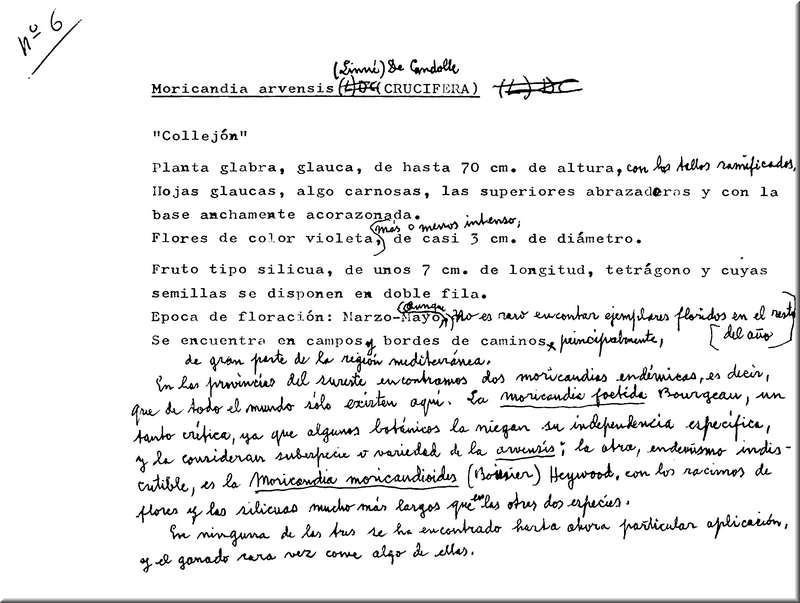 nº 6
(Linné) De Candolle
Moricandia arvensis (L)DC (CRUCIFERA) (L) DC
"Collejón"
Planta glabra, glauca, de hasta 70 cm. de altura, con los tallos ramificados.
Hojas glaucas, algo carnosas, las superiores abrazaderas y con la
base anchamente acorazonada.
más o menos intenso,
Flores de color violeta, de casi 3 cm. de diámetro.
Fruto tipo silicua, de unos 7 cm. de longitud, tetrágono y cuyas
semillas se disponen en doble fila.
aunque
Epoca de floración: Marzo-Mayo, no es raro encontar ejemplares floridos en el resto
del año
Se encuentra en campos y bordes de caminos, principalmente,
de gran parte de la región mediterránea.
En las provincias del sureste encontramos dos moricandias endémicas, es decir,
que de todo el mundo sólo existen aquí. La moricandia foetida Bourgeau, un
tanto crítica, ya que algunos botánicos la niegan su independencia específica,
y la consideran subespecie o variedad de la arvensis; la otra, endemismo indis-
cutible, es la Moricandia moricandioides (Boissier) Heywood, con los racimos de
flores y las silicuas mucho más largos que en las otras dos especies.
En ninguna de las tres se ha encontrado hasta ahora particular aplicación,
y el ganado rara vez come algo de ellas.